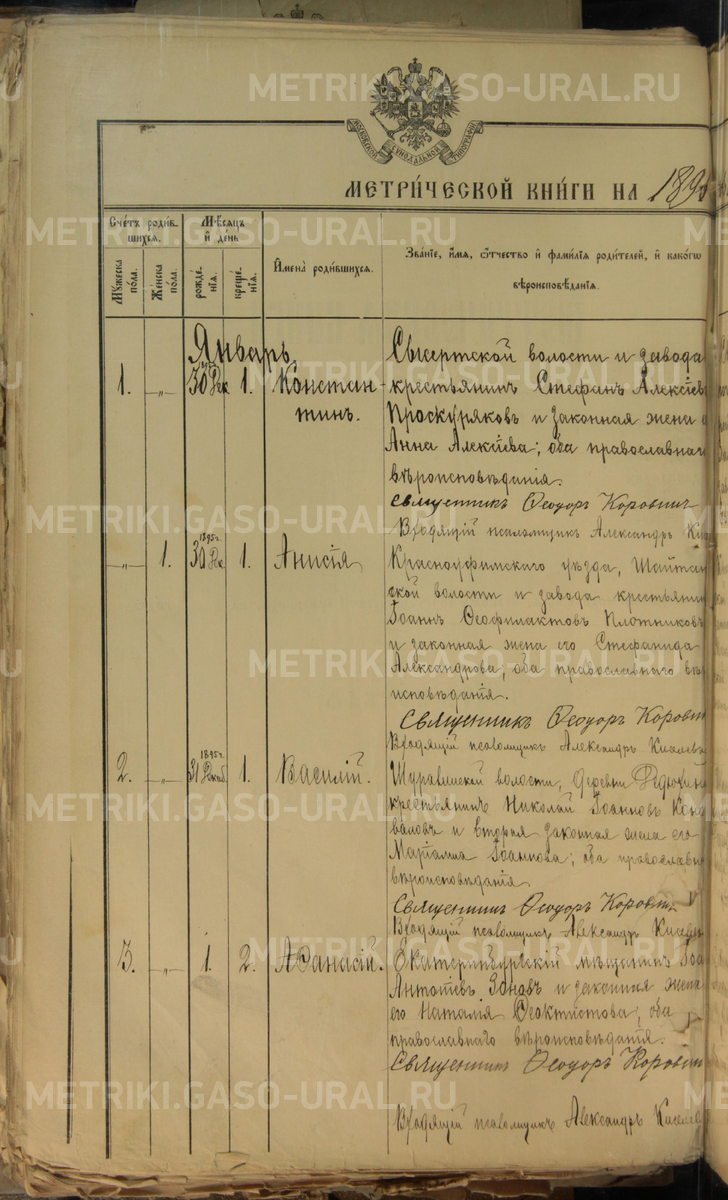 МОСКОВСКОЙ СѴНОДАЛЬНОЙ ТИПОГРАФІИ
МЕТРИ́ЧЕСКОЙ КНИ́ГИ НА 189
Сче́тъ роди́в-
шихся.
Мѣ́сяцъ
и҆ де́нь
Имена̀ роди́вшихся.
Зва́нїе, и҆́мя, ѻ҆́тчество и҆ фами́лїя роди́телей, и҆ како́гѡ
вѣроисповѣ́данїя.
Мꙋ́жеска
по́ла.
Же́нска
по́ла.
рожде́-
нїя.
креще́-
нїя.
Январь
1. -„- 30 Дек 1. Констан-
тинъ.
Сысертской волости и завода
крестьянинъ Стефанъ Алексѣев
Проскуряковъ и законная жена
Анна Алексѣева; оба православнаг
вѣроисповѣданія.
Священникъ Ѳеодоръ Коровин
Входящій псаломщикъ Александръ Ки
-„- 1. 1895г. 30 Дек 1. Анисія
Красноуфимскаго уѣзда, Шайтан
ской волости и завода крестьянин
Іоаннъ Ѳеофилактовъ Плотников
и законная жена его Стефанида
Александрова; оба православнаго вѣр
исповѣданія.
Священникъ Ѳеодоръ Коровин
Входящій псаломщикъ Александръ Киселев
2. -„- 1895г. 31 Декаб 1. Василій.
волости, деревни
крестьянинъ Николай Іоанновъ Коно
валовъ и вторая законная жена его
Маріамна Іоаннова; оба православн
вѣроисповѣданія
Священникъ Ѳеодоръ Коровин
Входящій псаломщикъ Александръ Киселев
3. -„- 1. 2. Аѳанасій.
Екатеринбургскій мѣщанинъ Іоа
Антоніевъ и законная жена
его Наталія Ѳеоктистова; оба
православнаго вѣроисповѣданія.
Священникъ Ѳеодоръ Коровин
Входящій псаломщикъ Александръ Киселев
METRIKI.GASO-URAL.RU